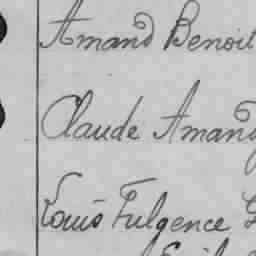 Amand Benoit
Claude Amand
Louis Fulgence